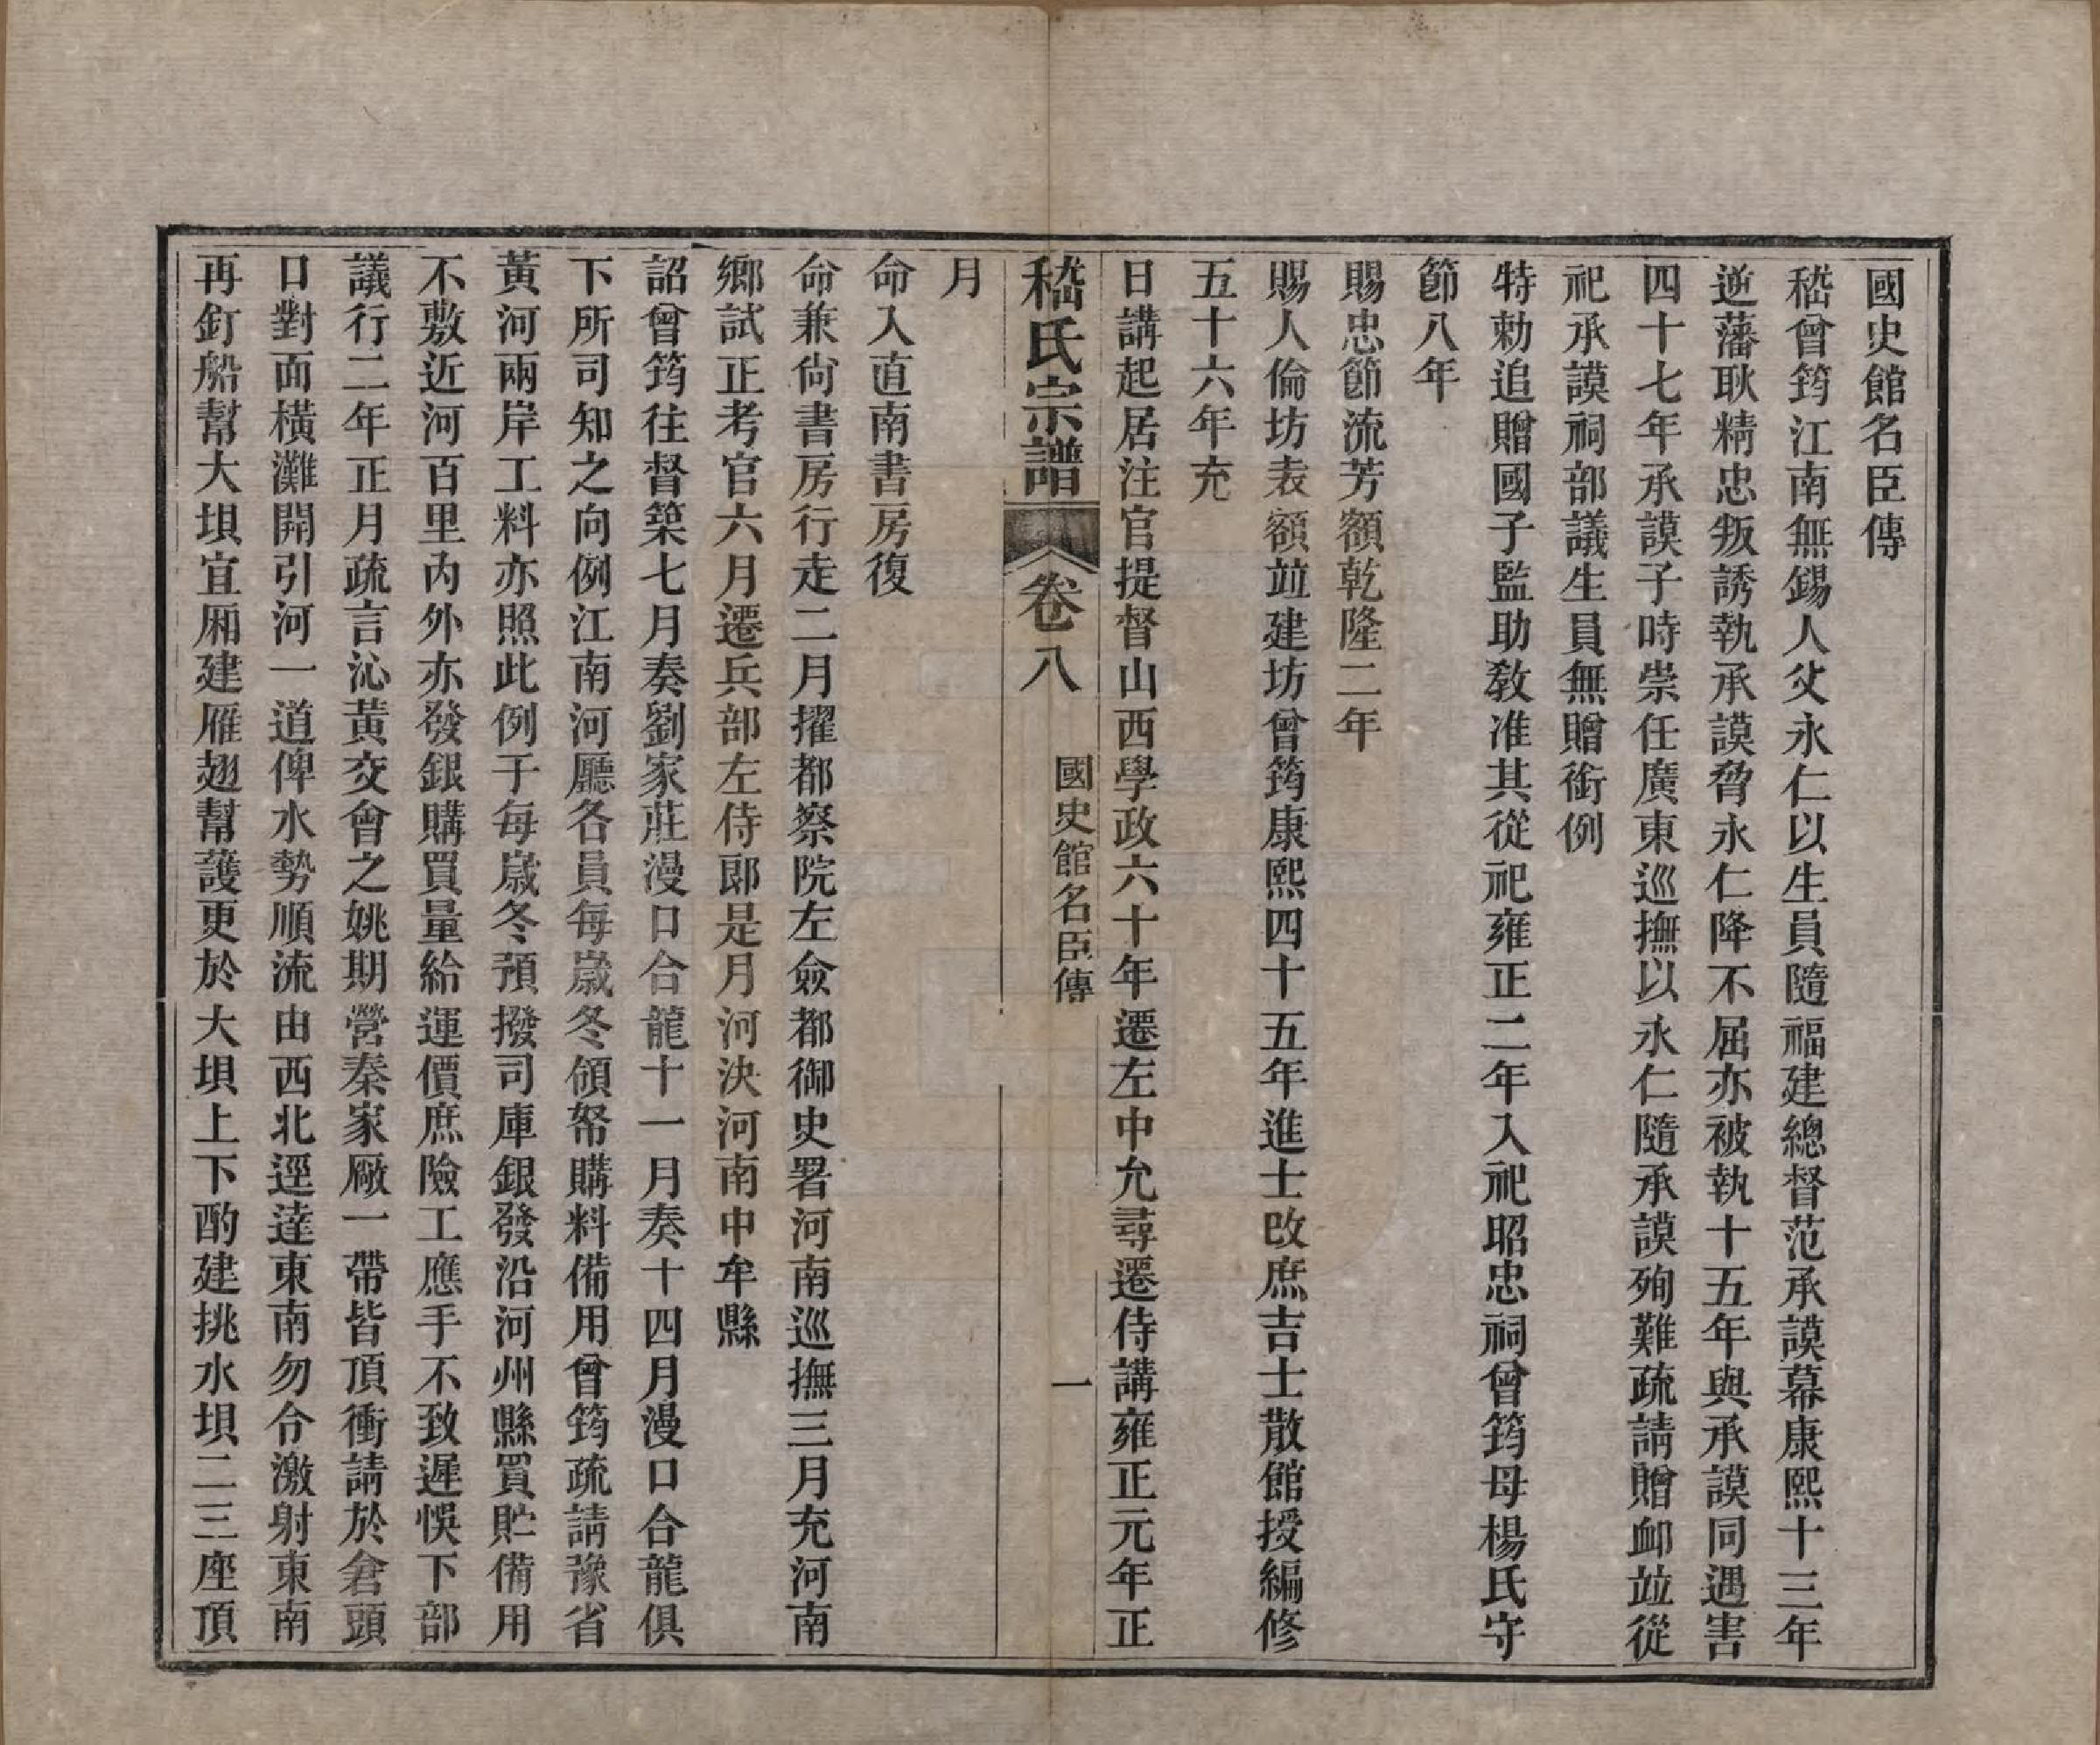 國史館名臣傳
嵇曾筠江南無錫人父永仁以生員隨福建總督范承謨幕康熙十三年
逆藩耿精忠叛誘執承謨脅永仁降不屈亦被執十五年與承謨同遇害
四十七年承謨子時崇任廣東巡撫以永仁隨承謨殉難疏請贈卹並從
祀承謨祠部議生員無贈銜例
特勅追贈國子監助教准其從祀雍正二年入祀昭忠祠曾筠母楊氏守
節八年
賜忠節流芳額乾隆二年
賜人倫坊表額並建坊曾筠康熙四十五年進士改庶吉士散館授編修
五十六年充
日講起居注官提督山西學政六十年遷左中允尋遷侍講雍正元年正
嵇氏宗譜 卷八 國史館名臣傳 一
月
命入直南書房復
命兼尚書房行走二月擢都察院左僉都御史署河南巡撫三月充河南
鄉試正考官六月遷兵部左侍郎是月河決河南中牟縣
詔曾筠往督築七月奏劉家莊漫口合龍十一月奏十四月漫口合龍俱
下所司知之向例江南河廳各員每歲冬領帑購料備用曾筠疏請豫省
黃河兩岸工料亦照此例于每歲冬預撥司庫銀發沿河州縣買貯備用
不敷近河百里內外亦發銀購買量給運價庶險工應手不致遲悞下部
議行二年正月疏言沁黃交會之姚期營秦家廠一帶皆頂衝請於倉頭
口對面橫灘開引河一道俾水勢順流由西北逕達東南勿令激射東南
再釘船幫大埧宜廂建雁翅幫護更於大埧上下酌建挑水埧二三座頂